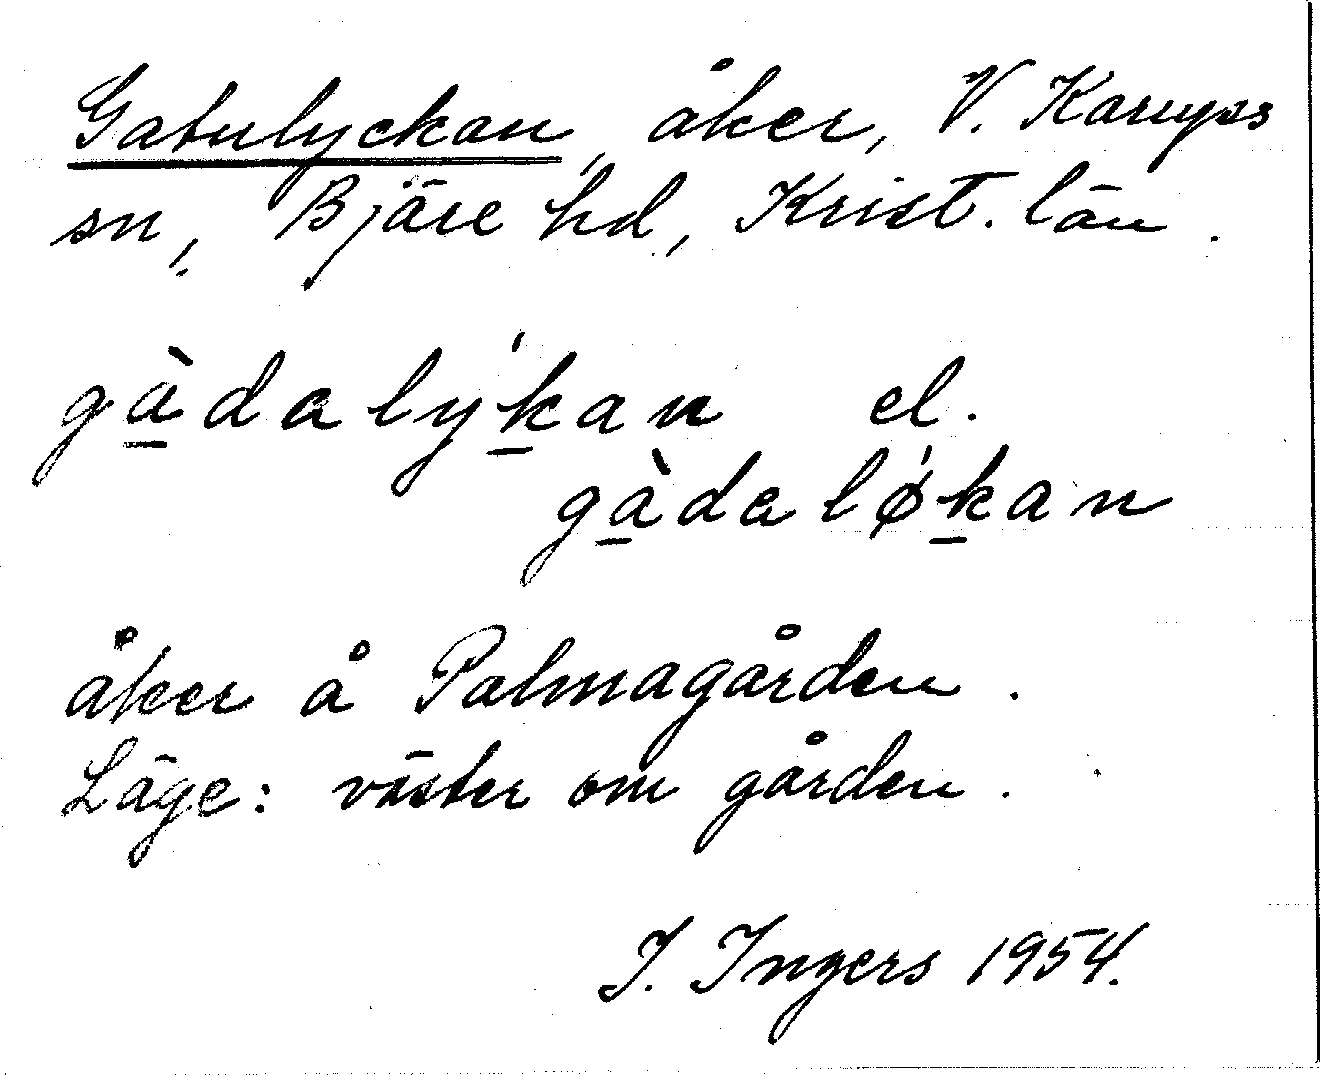 Gatulyckan, åker, V. Karups
sn, Bjäre hd, Krist. län.
gàdalýkan el.
gàdaløkan
åker å Palmagården.
Läge: väster om gården.
I. Ingers 1954.